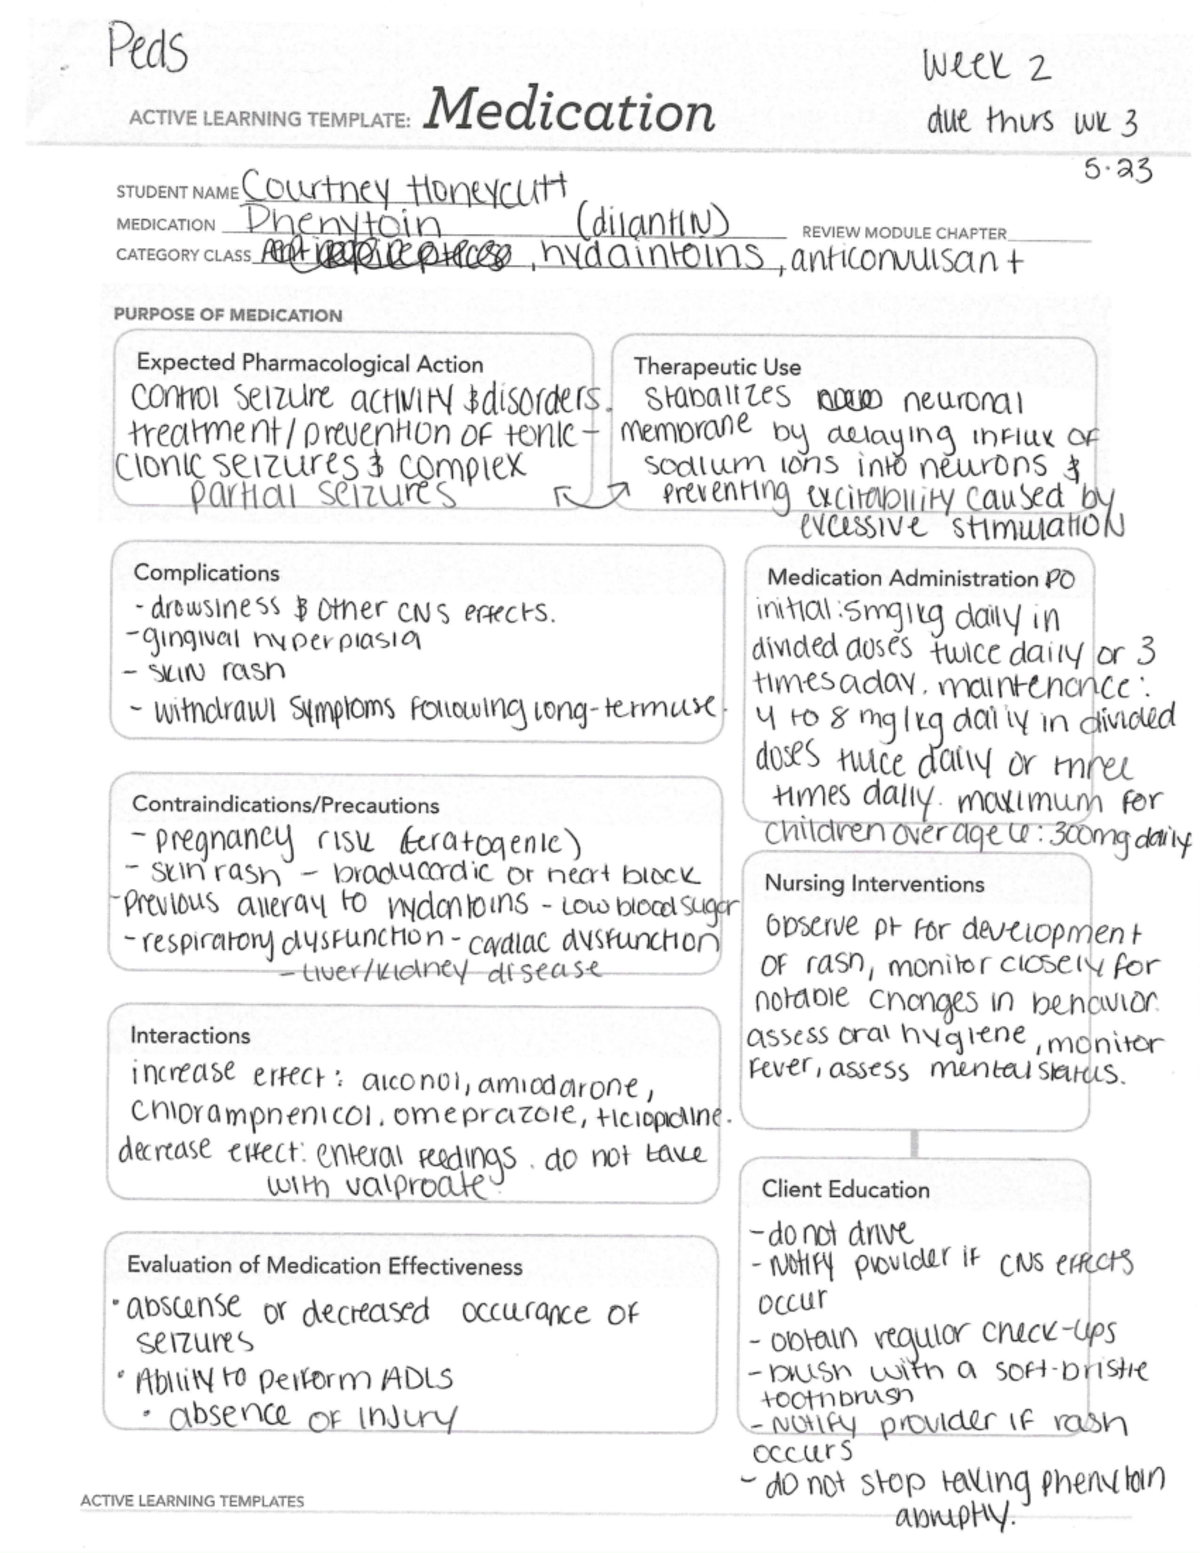 Peds
Week 2
ACTIVE LEARNING TEMPLATE: Medication
due thurs wk 3
5.23
STUDENT NAME Courtney Honeycutt
MEDICATION Phenytoin (dilantiN)
REVIEW MODULE CHAPTER
CATEGORY CLASS , hydaintoins, anticonvulsant
PURPOSE OF MEDICATION
Expected Pharmacological Action
control seizure activity & disorders.
treatment/prevention of tonic-
clonic seizures & complex
partial seizures
Therapeutic Use
stabalizes neuronal
membrane by delaying influx of
sodium ions into neurons &
preventing excitability caused by
excessive stimulation
Complications
- drowsiness & other CNS effects.
- gingival hyperplasia
- skin rash
- withdrawl symptoms following long-term use.
Medication Administration PO
initial: 5mg/kg daily in
divided doses twice daily or 3
times a day. maintenance:
4 to 8 mg/kg daily in divided
doses twice daily or three
times daily. maximum for
children over age 6: 300mg daily
Contraindications/Precautions
- pregnancy risk (teratogenic)
- skin rash - bradycardic or heart block
- previous allergy to hydantoins - low blood sugar
- respiratory dysfunction - cardiac dysfunction
- liver/kidney disease
Nursing Interventions
observe pt for development
of rash, monitor closely for
notable changes in behavior.
assess oral hygiene, monitor
fever, assess mental status.
Interactions
increase effect: alcohol, amiodarone,
chloramphenicol, omeprazole, ticlopidine.
decrease effect: enteral feedings. do not take
with valproate.
Client Education
- do not drive
- Notify provider if CNS effects
occur
- obtain regular check-ups
- brush with a soft-bristle
toothbrush
- Notify provider if rash
occurs
- do not stop taking phenytoin
abruptly.
Evaluation of Medication Effectiveness
• abscense or decreased occurance of
seizures
• Ability to perform ADLS
• absence of injury
ACTIVE LEARNING TEMPLATES